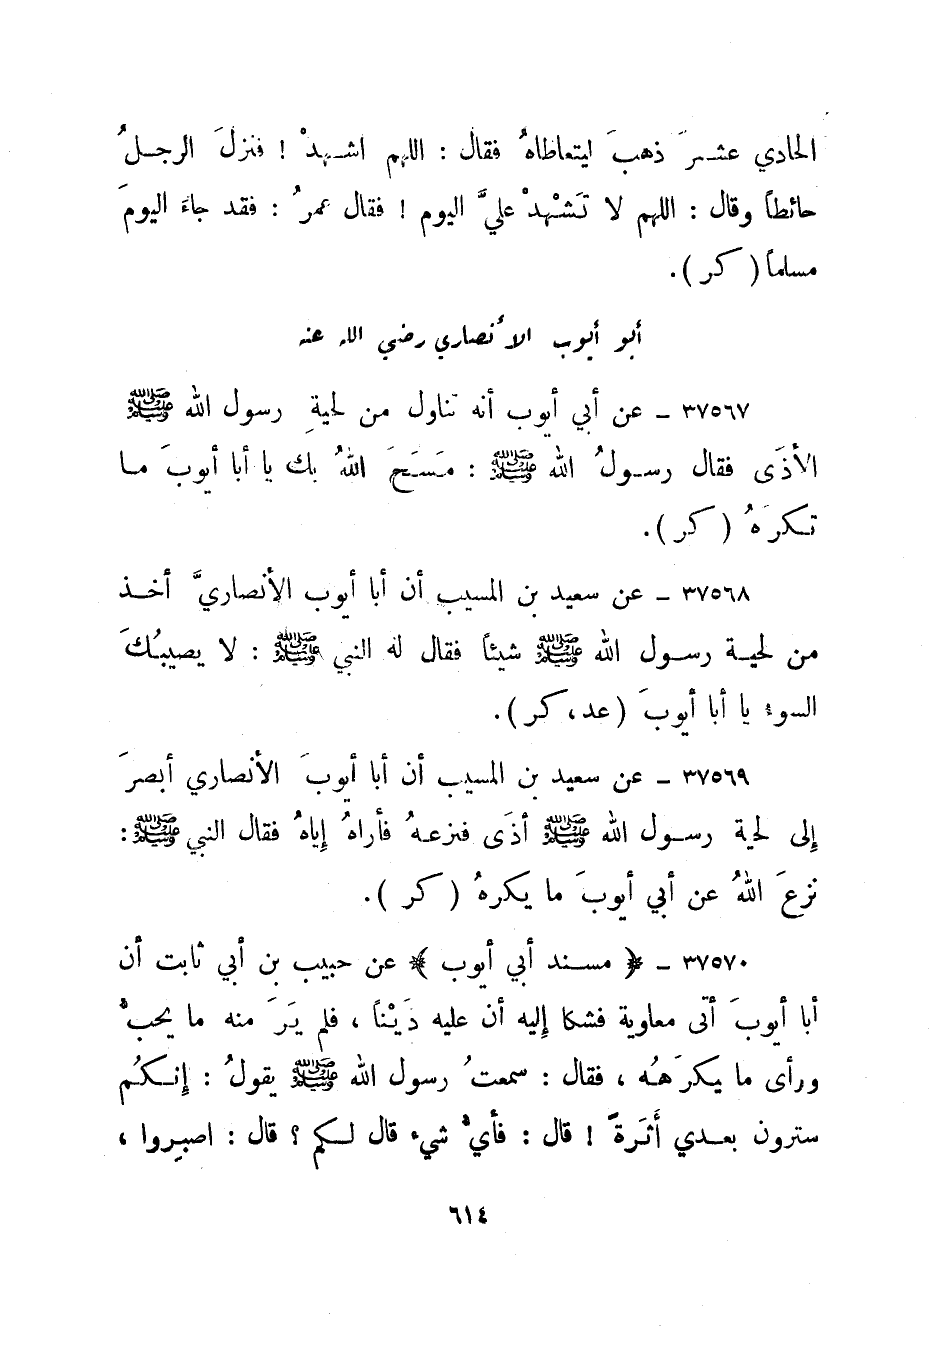 الحادي عشرَ ذهبَ ليتعاطاهُ فقال : اللهم اشهدْ ! فنزلَ الرجلُ
حائطاً وقال : اللهم لا تَشْهدْ عليَّ اليوم ! فقال عمرُ : فقد جاءَ اليومَ
مسلماً ( كر ) .
أبو أيوب الأنصاري رضي الله عنه
٣٧٥٦٧ ـ عن أبي أيوب أنه تناول من لحيةِ رسول الله ﷺ
الأذَى فقال رسولُ الله ﷺ : مَسَحَ اللهُ بك يا أبا أيوبَ ما
تكرَهُ ( كر ) .
٣٧٥٦٨ ـ عن سعيد بن المسيب أن أبا أيوب الأنصاريَّ أخذ
من لحية رسول الله ﷺ شيئاً فقال له النبي ﷺ : لا يصيبُكَ
السوء يا أبا أيوبَ ( عد، كر ) .
٣٧٥٦٩ ـ عن سعيد بن المسيب أن أبا أيوبَ الأنصاري أبصرَ
إلى لحية رسول الله ﷺ أذَى فنزعهُ فأراهُ إياهُ فقال النبي ﷺ :
نزعَ اللهُ عن أبي أيوبَ ما يكرهُ ( كر ) .
٣٧٥٧٠ ـ ﴿ مسند أبي أيوب ﴾ عن حبيب بن أبي ثابت أن
أبا أيوبَ أتى معاوية فشكا إليه أن عليه دَيْناً ، فلم يَرَ منه ما يحبُّ
ورأى ما يكرَهُه ، فقال : سمعتُ رسول الله ﷺ يقولُ : إنكُم
سترون بعدي أَثَرةً ! قال : فأيُّ شيء قال لكم ؟ قال : اصبروا ،
٦١٤